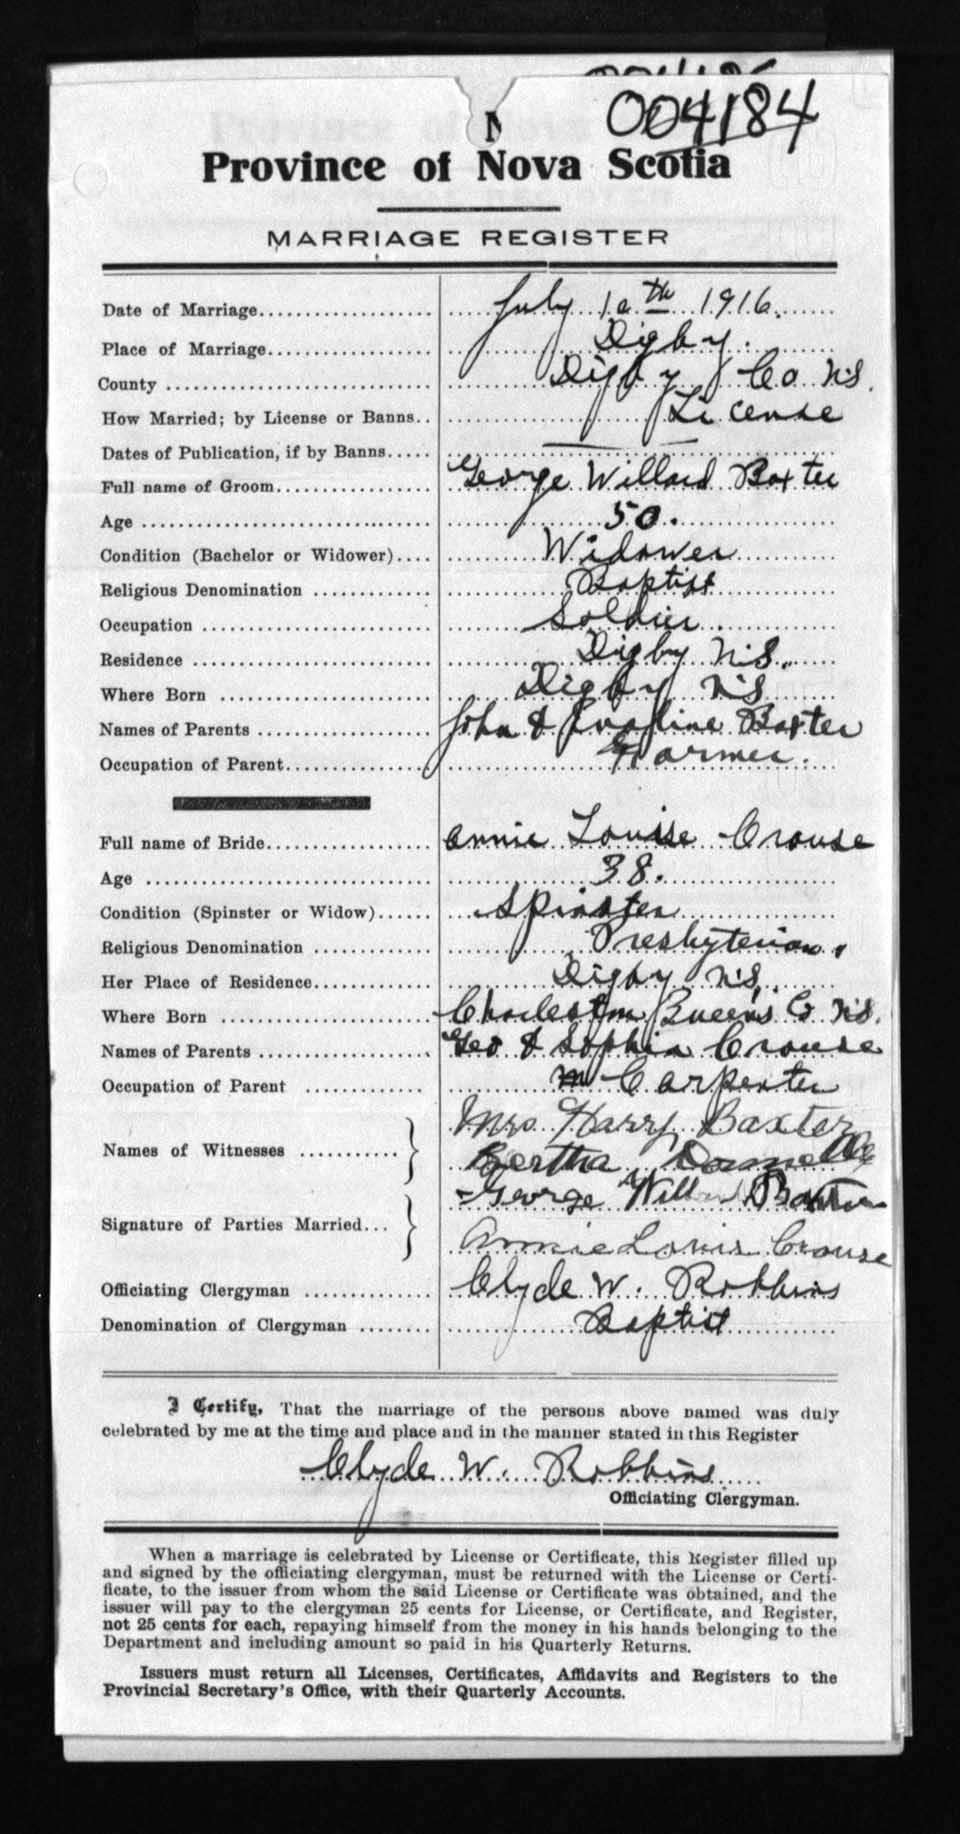 004184
N
Province of Nova Scotia
MARRIAGE REGISTER
Date of Marriage July 10th 1916.
Place of Marriage Digby.
County Digby Co N.S.
How Married; by License or Banns License
Dates of Publication, if by Banns
Full name of Groom George Willard Baxter
Age 50.
Condition (Bachelor or Widower) Widower
Religious Denomination Baptist
Occupation Soldier
Residence Digby N.S.
Where Born Digby N.S
Names of Parents John & Evaline Baxter
Occupation of Parent Farmer.
Full name of Bride Annie Louise Crouse
Age 38.
Condition (Spinster or Widow) Spinster
Religious Denomination Presbyterian.
Her Place of Residence Digby N.S.
Where Born Charleston Queens Co N.S.
Names of Parents Geo & Sophia Crouse
Occupation of Parent Carpenter
Names of Witnesses Mrs. Harry Baxter
Bertha
Signature of Parties Married George Willard Baxter
Annie Louis Crouse
Officiating Clergyman Clyde W. Robbins
Denomination of Clergyman Baptist
I Certify, That the marriage of the persons above named was duly
celebrated by me at the time and place and in the manner stated in this Register
Clyde W. Robbins
Officiating Clergyman.
When a marriage is celebrated by License or Certificate, this Register filled up
and signed by the officiating clergyman, must be returned with the License or Certi-
ficate, to the issuer from whom the said License or Certificate was obtained, and the
issuer will pay to the clergyman 25 cents for License, or Certificate, and Register,
not 25 cents for each, repaying himself from the money in his hands belonging to the
Department and including amount so paid in his Quarterly Returns.
Issuers must return all Licenses, Certificates, Affidavits and Registers to the
Provincial Secretary's Office, with their Quarterly Accounts.